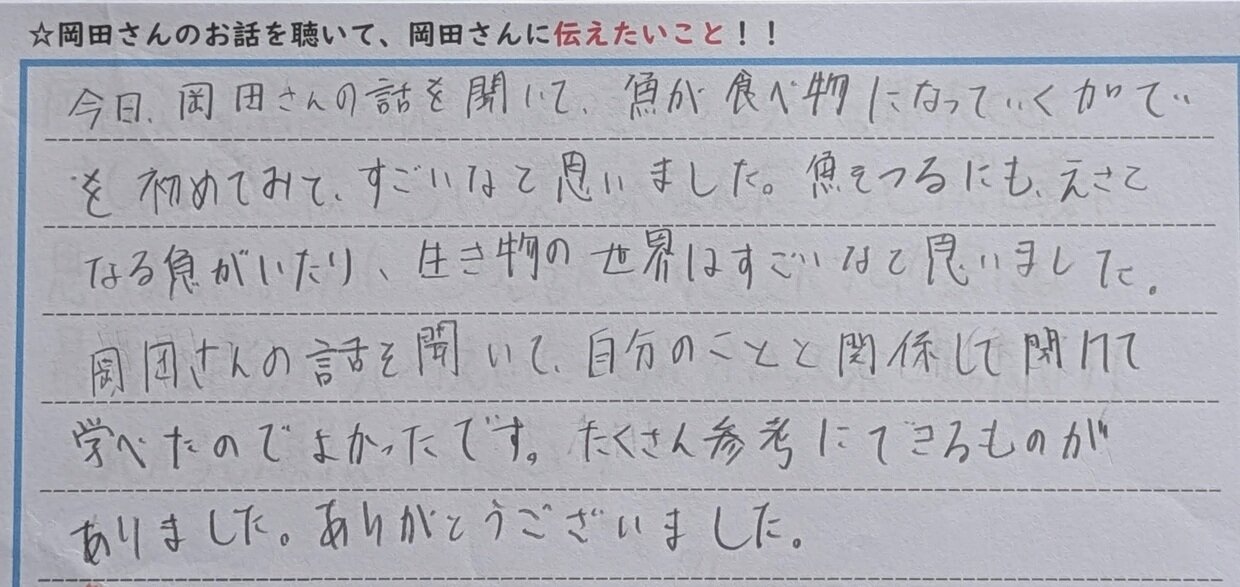 ☆岡田さんのお話を聴いて、岡田さんに伝えたいこと！！
今日、岡田さんの話を聞いて、魚が食べ物になっていくかてい
を初めてみて、すごいなと思いました。魚をつるにも、えさと
なる魚がいたり、生き物の世界はすごいなと思いました。
岡田さんの話を聞いて、自分のことと関係して聞けて
学べたのでよかったです。たくさん参考にできるものが
ありました。ありがとうございました。